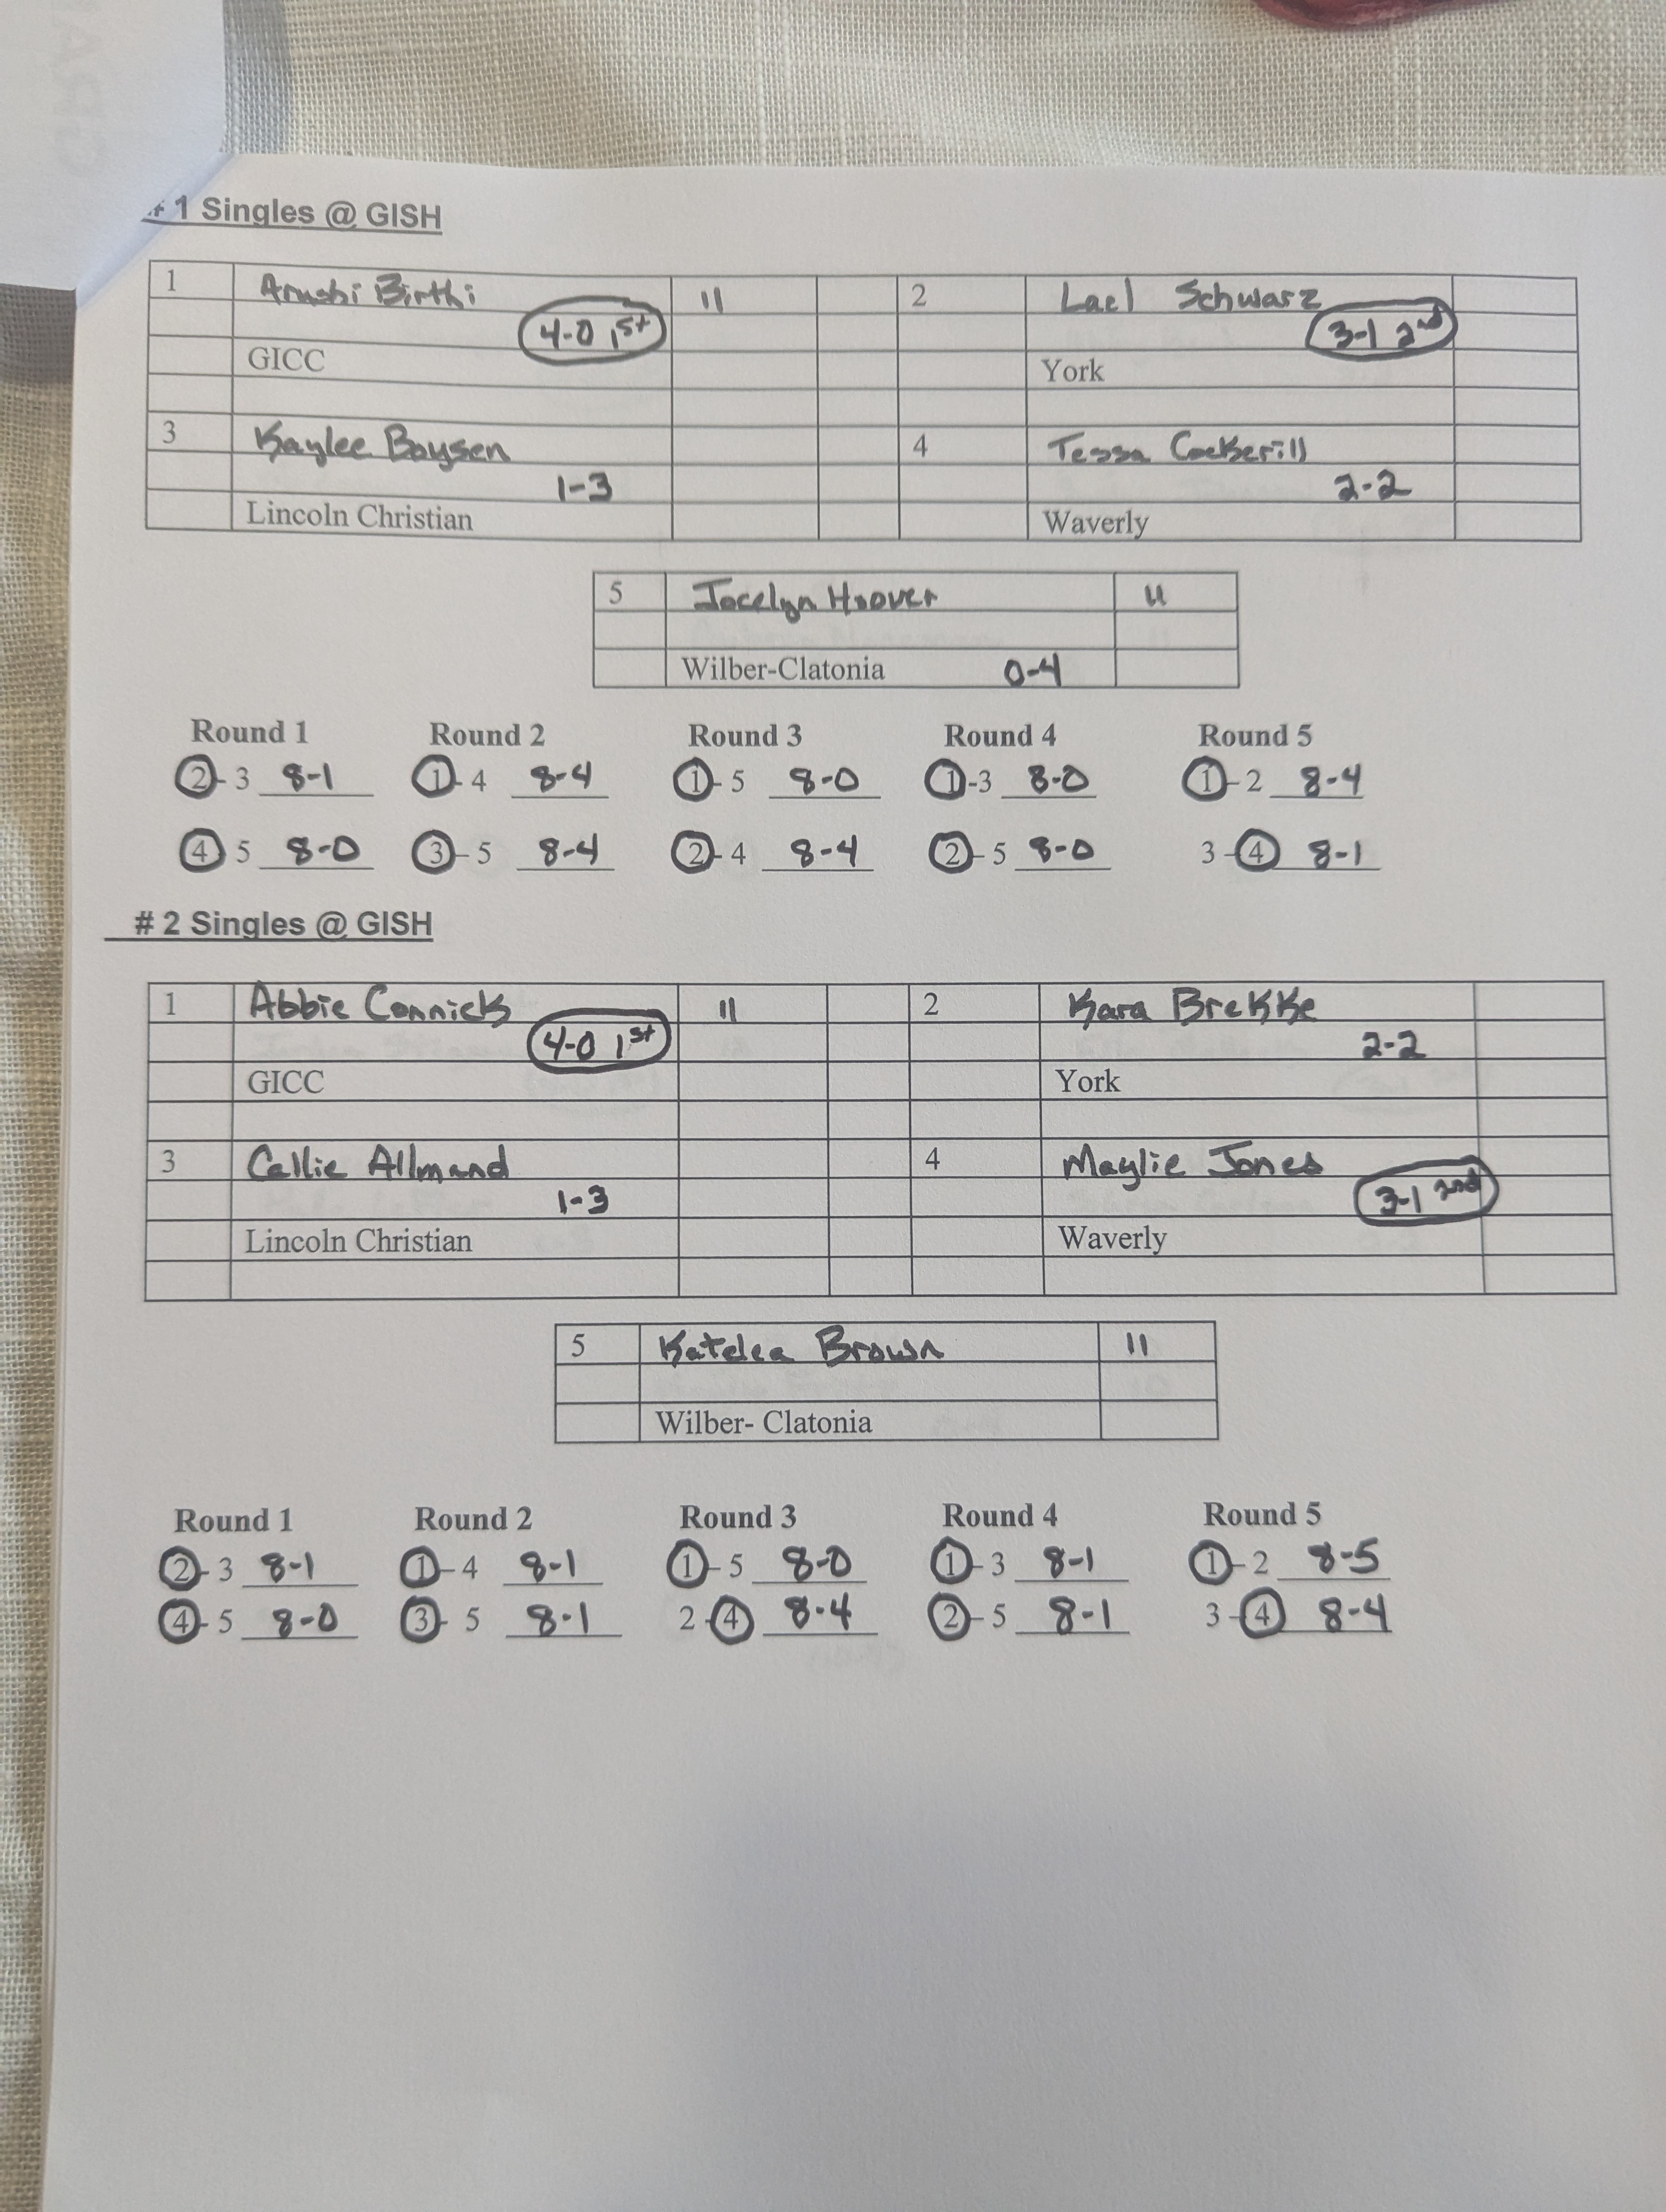 # 1 Singles @ GISH
1 Arushi Birthi 11 2 Lael Schwarz
4-0 1st 3-1 2nd
GICC York
3 Kaylee Boysen 4 Tessa Cockerill
1-3 2-2
Lincoln Christian Waverly
5 Jocelyn Hoover 11
Wilber-Clatonia 0-4
Round 1 Round 2 Round 3 Round 4 Round 5
2 - 3 8-1 1 - 4 8-4 1 - 5 8-0 1 -3 8-0 1 - 2 8-4
4 5 8-0 3 - 5 8-4 2 - 4 8-4 2 - 5 8-0 3 - 4 8-1
# 2 Singles @ GISH
1 Abbie Connick 11 2 Kara Brekke
4-0 1st 2-2
GICC York
3 Callie Allmand 4 Maylie Jones
1-3 3-1 2nd
Lincoln Christian Waverly
5 Katelea Brown 11
Wilber- Clatonia
Round 1 Round 2 Round 3 Round 4 Round 5
2 - 3 8-1 1 - 4 8-1 1 - 5 8-0 1 - 3 8-1 1 - 2 8-5
4 - 5 8-0 3 - 5 8-1 2 - 4 8-4 2 - 5 8-1 3 - 4 8-4